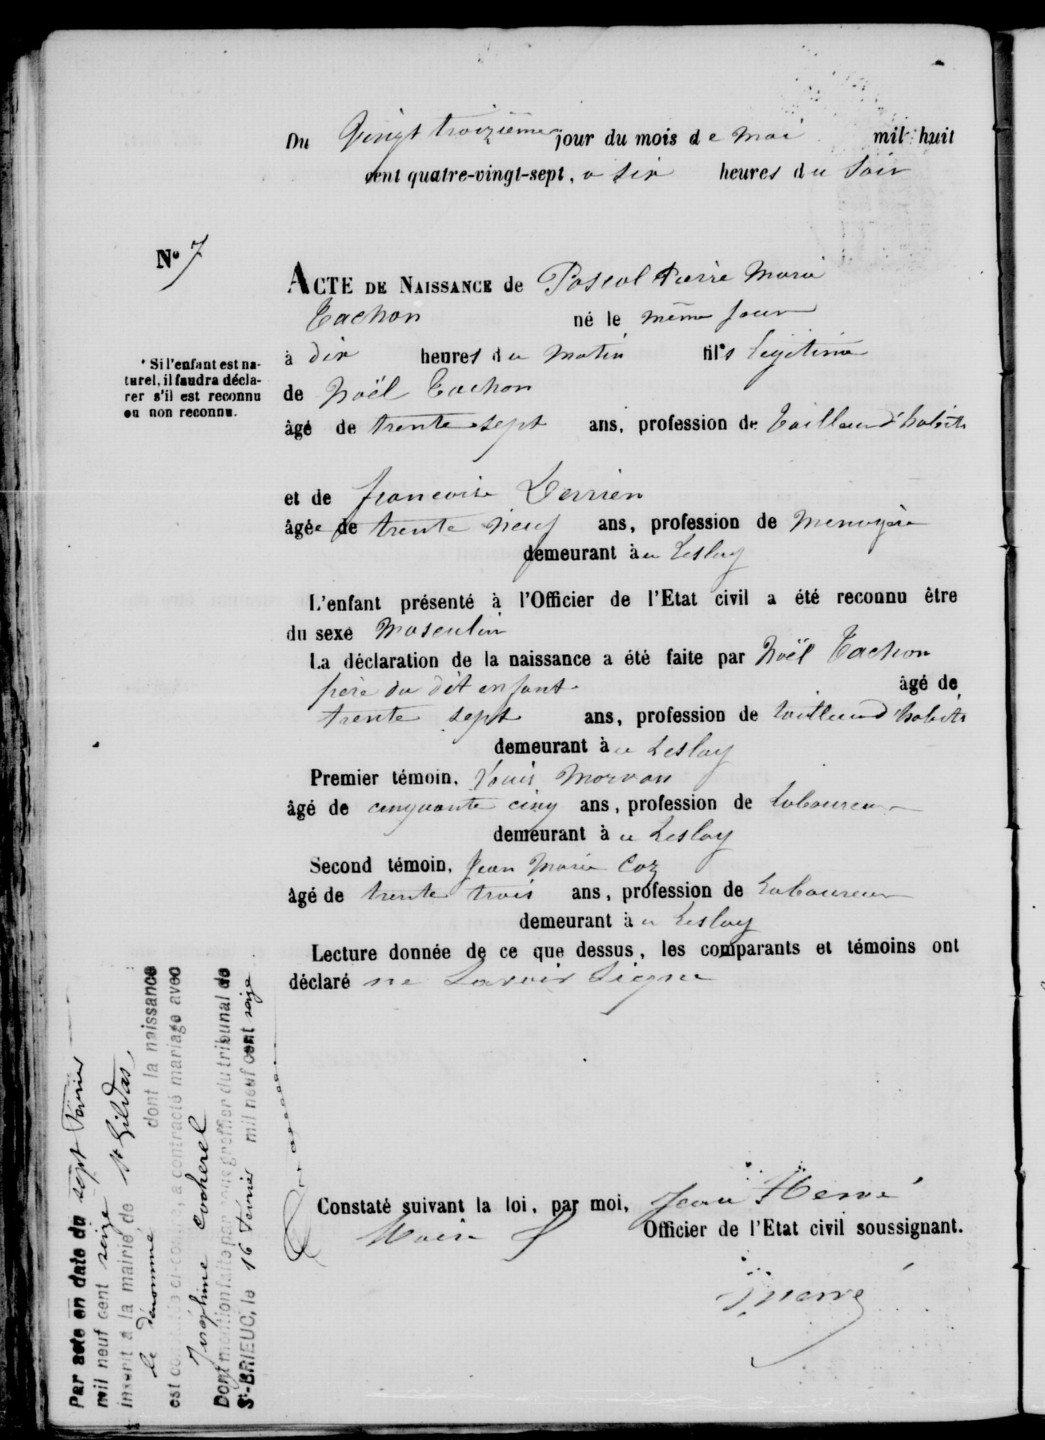 Du Vingt troizième jour du mois de mai mil huit
cent quatre-vingt-sept, a six heures du Soir
N° 7
ACTE DE NAISSANCE de Pascal Pierre Marie
Tachon né le même jour
à dix heures du matin fils Légitime
* Si l'enfant est na-
turel, il faudra décla-
rer s'il est reconnu
ou non reconnu.
de Noël Tachon
âgé de trente sept ans, profession de Tailleur d'habits
et de Francoise Derrien
âgée de trente neuf ans, profession de Menagère
demeurant à u Leslay
L'enfant présenté à l'Officier de l'Etat civil a été reconnu être
du sexe Masculin
La déclaration de la naissance a été faite par Noël Tachon
père du dit enfant âgé de
trente sept ans, profession de tailleur d'habits
demeurant à u Leslay
Premier témoin, Louis Morvan
âgé de cinquante cinq ans, profession de Laboureur
demeurant à u Leslay
Second témoin, Jean Marie Coz
âgé de trente trois ans, profession de Laboureur
demeurant à u Leslay
Lecture donnée de ce que dessus, les comparants et témoins ont
déclaré ne Savoir Signe
Constaté suivant la loi, par moi, Jean Hervé
Maire Officier de l'Etat civil soussignant.
Hervé
Par acte en date du sept Février
mil neuf cent seize
inscrit à la mairie de St Gildas
le dénommé dont la naissance
est constatée ci-contre, a contracté mariage avec
Joséphine Cocherel
Dont mention faite par nous greffier du tribunal de
St-BRIEUC, le 16 Février mil neuf cent seize